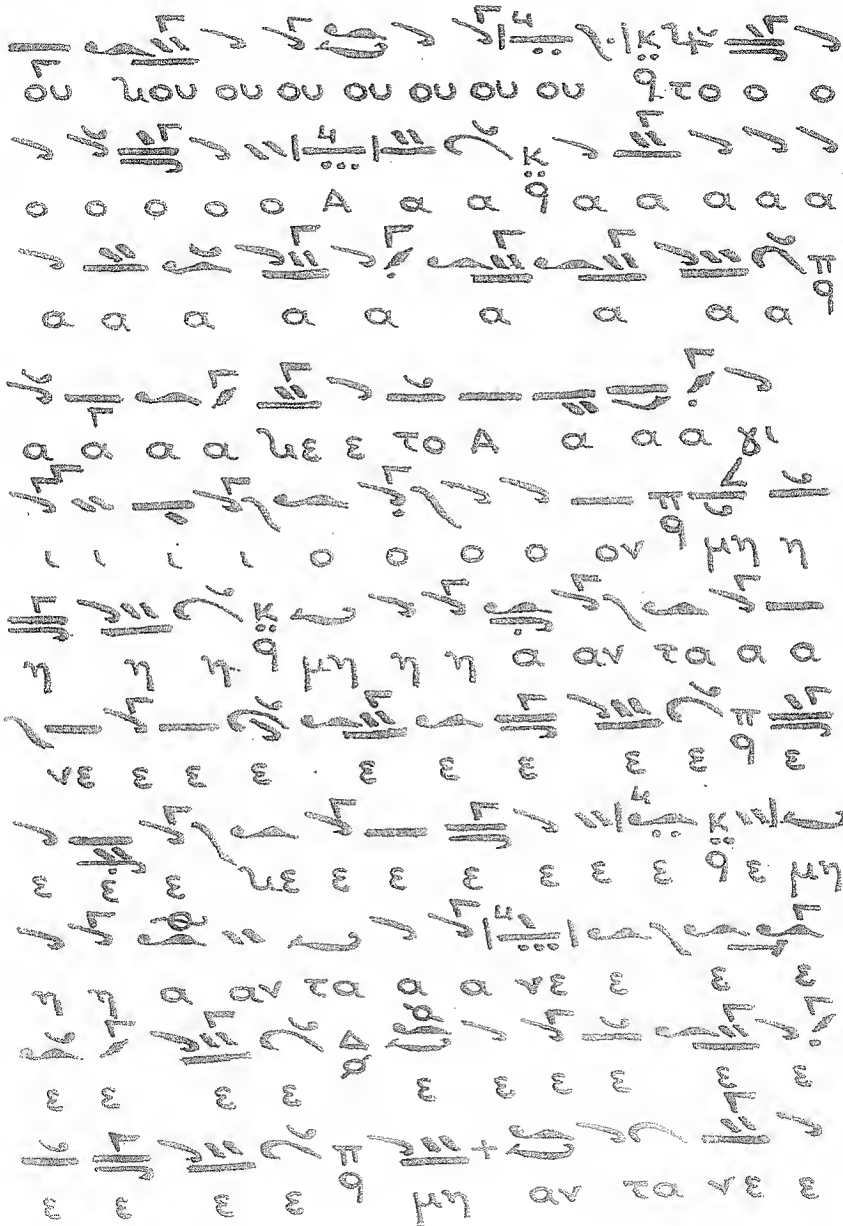 ου χου ου ου ου ου ου ου το ο ο
ο ο ο ο ο Α α α α α α α α
α α α α α α α α α
α α α α χε ε το Α α α α γι
ι ι ι ι ο ο ο ο ον μη η
η η η μη η η α αν τα α α
νε ε ε ε ε ε ε ε ε ε
ε ε ε χε ε ε ε ε ε ε ε μη
η η α αν τα α α νε ε ε ε
ε ε ε ε ε ε ε ε ε ε
ε ε ε ε μη αν τα νε ε